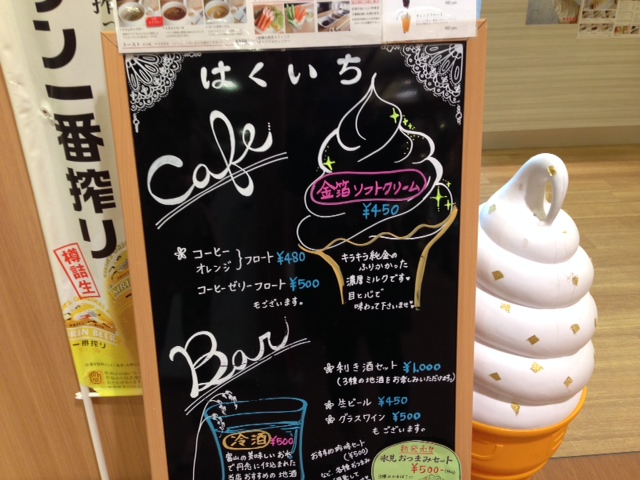 はくいち
Cafe
金箔ソフトクリーム
¥450
キラキラ純金の
ふりかかった
濃厚ミルクです♥
目と心で
味わって下さいませ♥
コーヒー
オレンジ
フロート ¥480
コーヒーゼリーフロート ¥500
もございます。
Bar
利き酒セット ¥1,000
(3種の地酒をお楽しみいただけます)
生ビール ¥450
グラスワイン ¥500
もございます。
冷酒 ¥500
富山の美味しいお水
で丹念に仕込まれた
当店おすすめの地酒
おすすめ
(¥500)
など、各種おつまみ
氷見おつまみセット
¥500-
一番搾り
樽詰生
KIRIN BEER
一番搾り